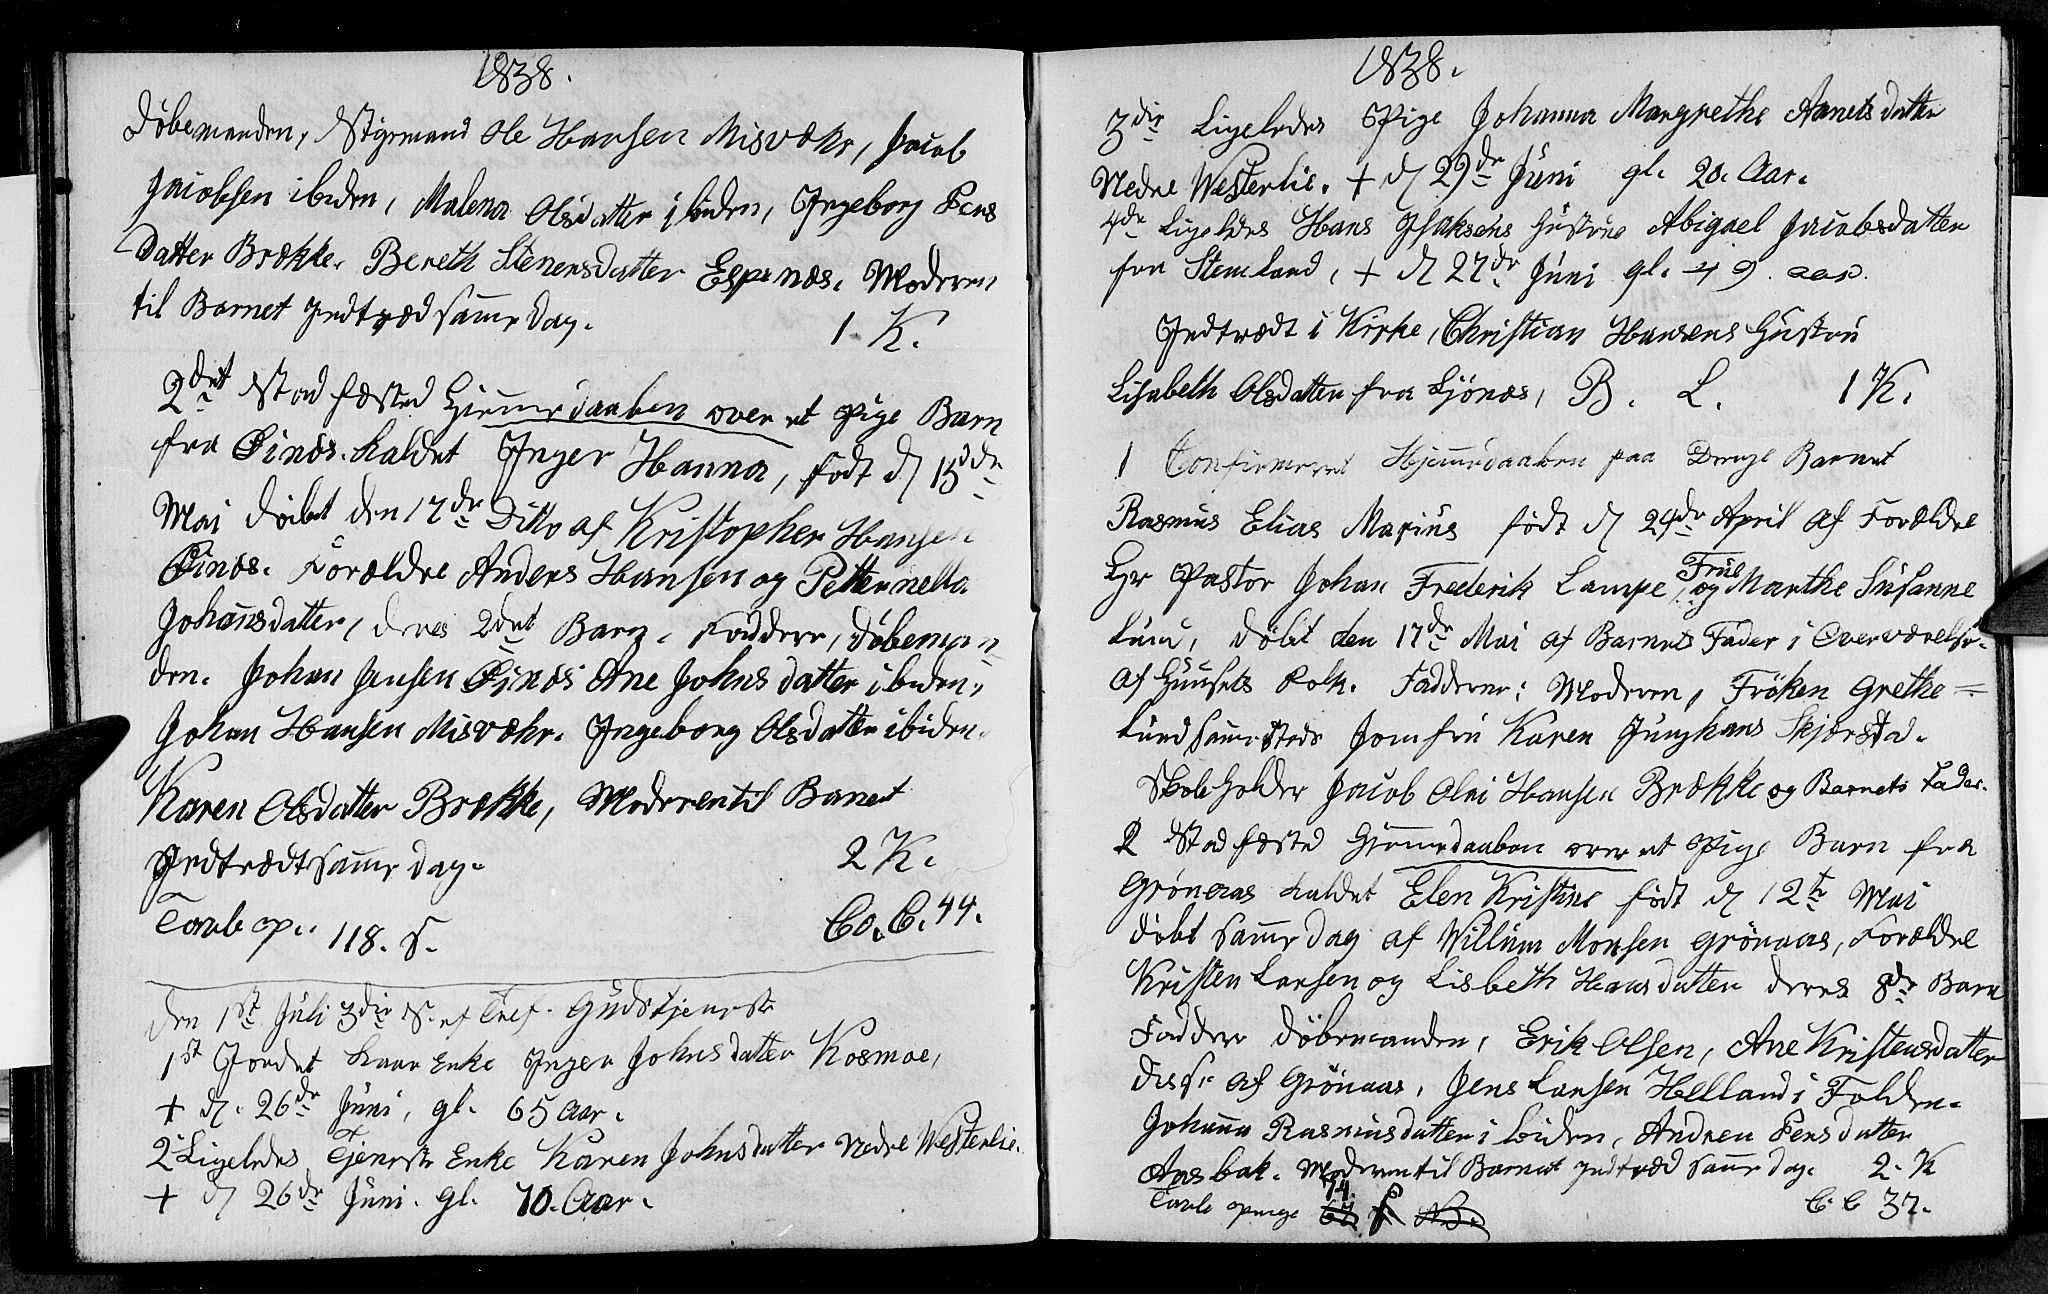 1838.
Döbemanden, Stigemand Ole Hansen Misvæhr, Jacob
Jacobsen ibiden, Malena Olsdatter ibiden, Ingeborg Pers
datter Brække. Bereth Stenersdatter Espenæs. Moderen
til Barnet Indtræd samme Dag. 1 K.
2det Stadfæsted Hiemmedaaben over et Pige Barn
fra Øinæs. kaldet Inger Hanna, født d 15de
Mai döbt den 17de Ditto af Kristopher Hansen
Øinæs. Forældre Anders Hansen og Petternella
Johansdatter, deres 2det Barn. Faddere, döbeman
den. Johan Jensen Øinæs Ane Johnsdatter ibiden,
Johan Hansen Misvæhr. Ingeborg Olsdatter ibiden.
Karen Olsdatter Brække, Moderen til Barnet
Indtrædt samme Dag. 2 K.
Tavle op.. 118. s. Co. C. 44.
Den 1ste Juli 3die S. ef Tref. Gudstjeneste
1st Jordet Kaar Enke Inger Johnsdatter Kosmoe,
+ d. 26de Juni, gl. 65 Aar.
2 Ligeledes Tjeneste Enke Karen Johnsdatter Nedre Westerlie.
+ d 26de Juni. gl. 70. Aar.
1838.
3die Ligeledes Pige Johanna Margrethe Anetsdatter
Nedre Westerlie. + d 29de Juni gl. 20. Aar.
4de Ligeledes Hans Isaksens Hustrue Abigael Jacobsdatter
fra Stemland, + d 27de Juni gl. 49. aar.
Indtrædt i Kirke, Christian Hansens Hustru
Lisabeth Olsdatter fra Ljönæs, B. L. 1 K.
1 Confirmeret Hjemmedaaben paa Drenge Barnet
Rasmus Elias Marius født d 24de April af Forældre
Hr Pastor Johan Frederik Lampe og Frue Marthe Susanne
Lund, döbt den 17de Mai af Barnets Fader i Overværelse
af Huusets Folk. Fadderne: Moderen, Fröken Grethe
Lund sammesteds Jomfru Karen Junghans Skjerstad.
Skoleholder Jacob Olai Hansen Brække og Barnets Fader.
2 Stadfæsted Hiemmedaaben over et Pige Barn fra
Grönaas kaldet Elen Kristine født d 12te Mai
döbt samme dag af Willum Monsen Grönaas, Forældre
Kristen Larsen og Lisbeth Hansdatter deres 8de Barn
Faddere döbemanden, Erik Olsen, Ane Kristensdatter
disse af Grönaas, Jens Larsen Helland i Folden.
Johanna Rasmusdatter ibiden, Andrea Persdatter
Aasbak. Moderen til Barnet indtræd samme dag. 2. K
Tavle penge 74. s. C. C 37.